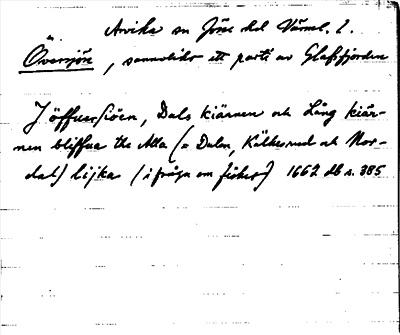 Arvika sn Jösse hd Värml. l.
Översjön, sannolikt ett parti av Glafsfjorden
J öffuersiöen, Dals kiärnen och Lång kiär-
nen bliffua the Alla (ɔ: Dalen, Kälkerud och Nor-
dal) lijka (i fråga om fisket) 1662 db s. 385